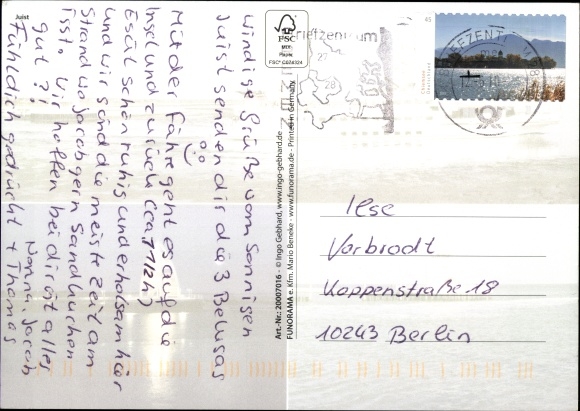 Juist
windige Grüße vom sonnigen
Juist senden dir die 3 Belugas
Mit der Fähre geht es auf die
Insel und zurück (ca 1 1/2 h)
Es ist schön ruhig und erholsam hier
und wir sind die meiste Zeit am
Strand wo Jacob gern Sandkuchen
isst. Wir hoffen bei dir ist alles
gut?!
Fühl dich gedrückt + Thomas
Nanni, Jacob
Art.-Nr.: 20007016 - © Ingo Gebhard, www.ingo-gebhard.de
FUNORAMA e. Kfm. Mario Beneke - www.funorama.de - Printed in Germany
FSC
MIX
Papier
FSC® C074324
Briefzentrum
27
28
45
Deutschland
BRIEFZENTRUM
Ilse
Vorbrodt
Koppenstraße 18
10243 Berlin